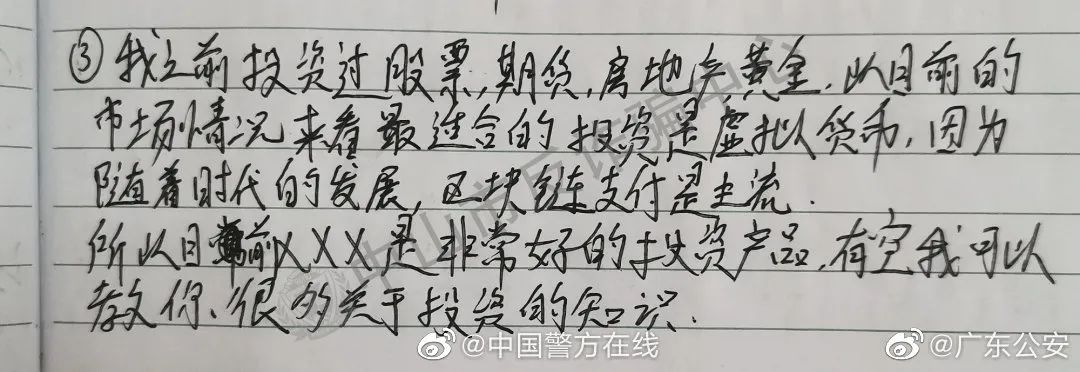 ③我之前投资过股票,期货,房地产,黄金.以目前的
市场情况来看最适合的投资是虚拟货币,因为
随着时代的发展,区块链支付是主流.
所以目前XXX是非常好的投资产品,有空我可以
教你、很多关于投资的知识.
中山市反诈骗中心
@中国警方在线
@广东公安